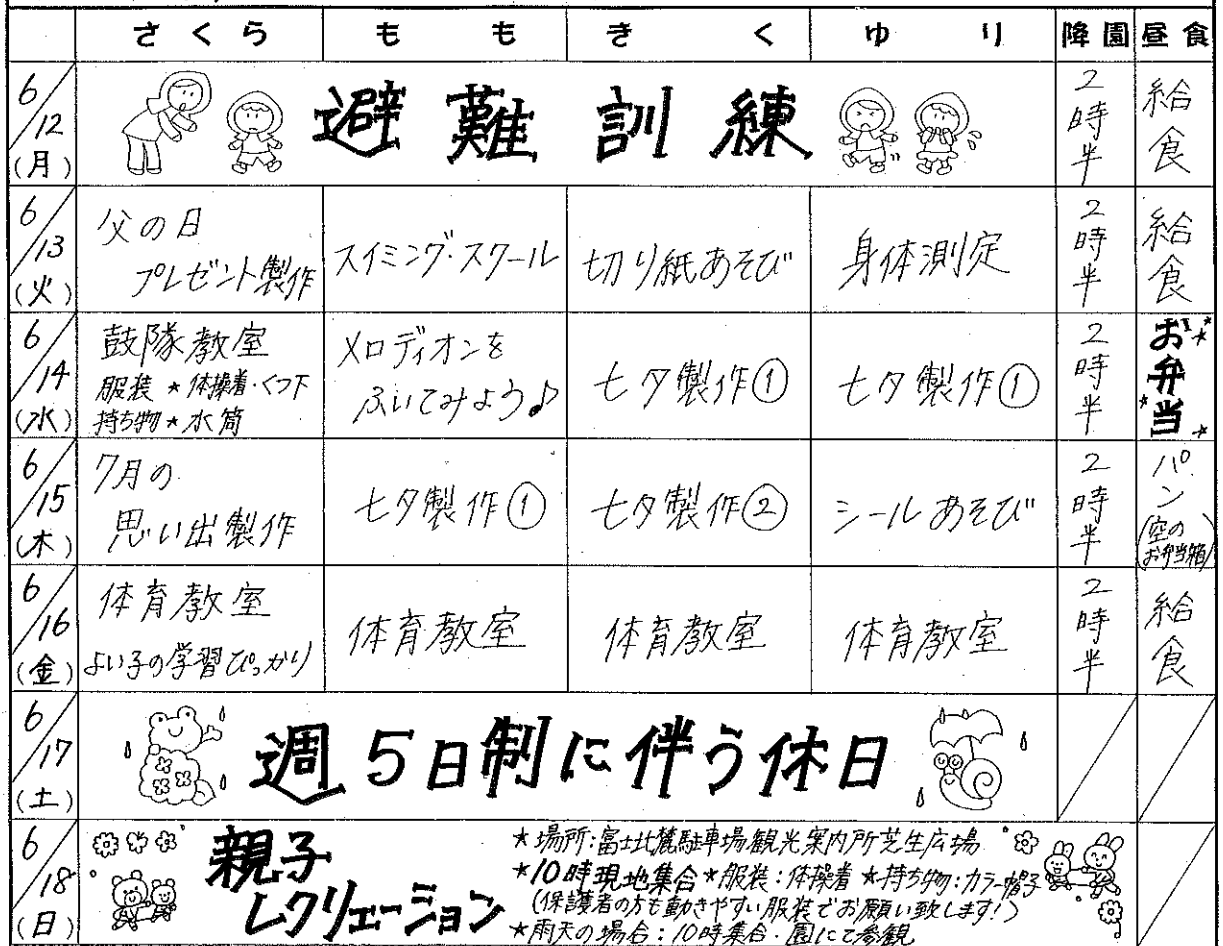 さくら もも きく ゆり 降園 昼食
6/12(月) 避難訓練 2時半 給食
6/13(火) 父の日 プレゼント製作 スイミング・スクール 切り紙あそび 身体測定 2時半 給食
6/14(水) 鼓隊教室 服装★体操着・くつ下 持ち物★水筒 メロディオンを ふいてみよう♪ 七夕製作① 七夕製作① 2時半 お弁当
6/15(木) 7月の 思い出製作 七夕製作① 七夕製作② シールあそび 2時半 パン(空のお弁当箱)
6/16(金) 体育教室 よい子の学習ぴっかり 体育教室 体育教室 体育教室 2時半 給食
6/17(土) 週5日制に伴う休日
6/18(日) 親子レクリェーション
★場所:富士北麓駐車場観光案内所芝生広場
★10時現地集合★服装:体操着★持ち物:カラー帽子
(保護者の方も動きやすい服装でお願い致します!)
★雨天の場合:10時集合・園にて参観